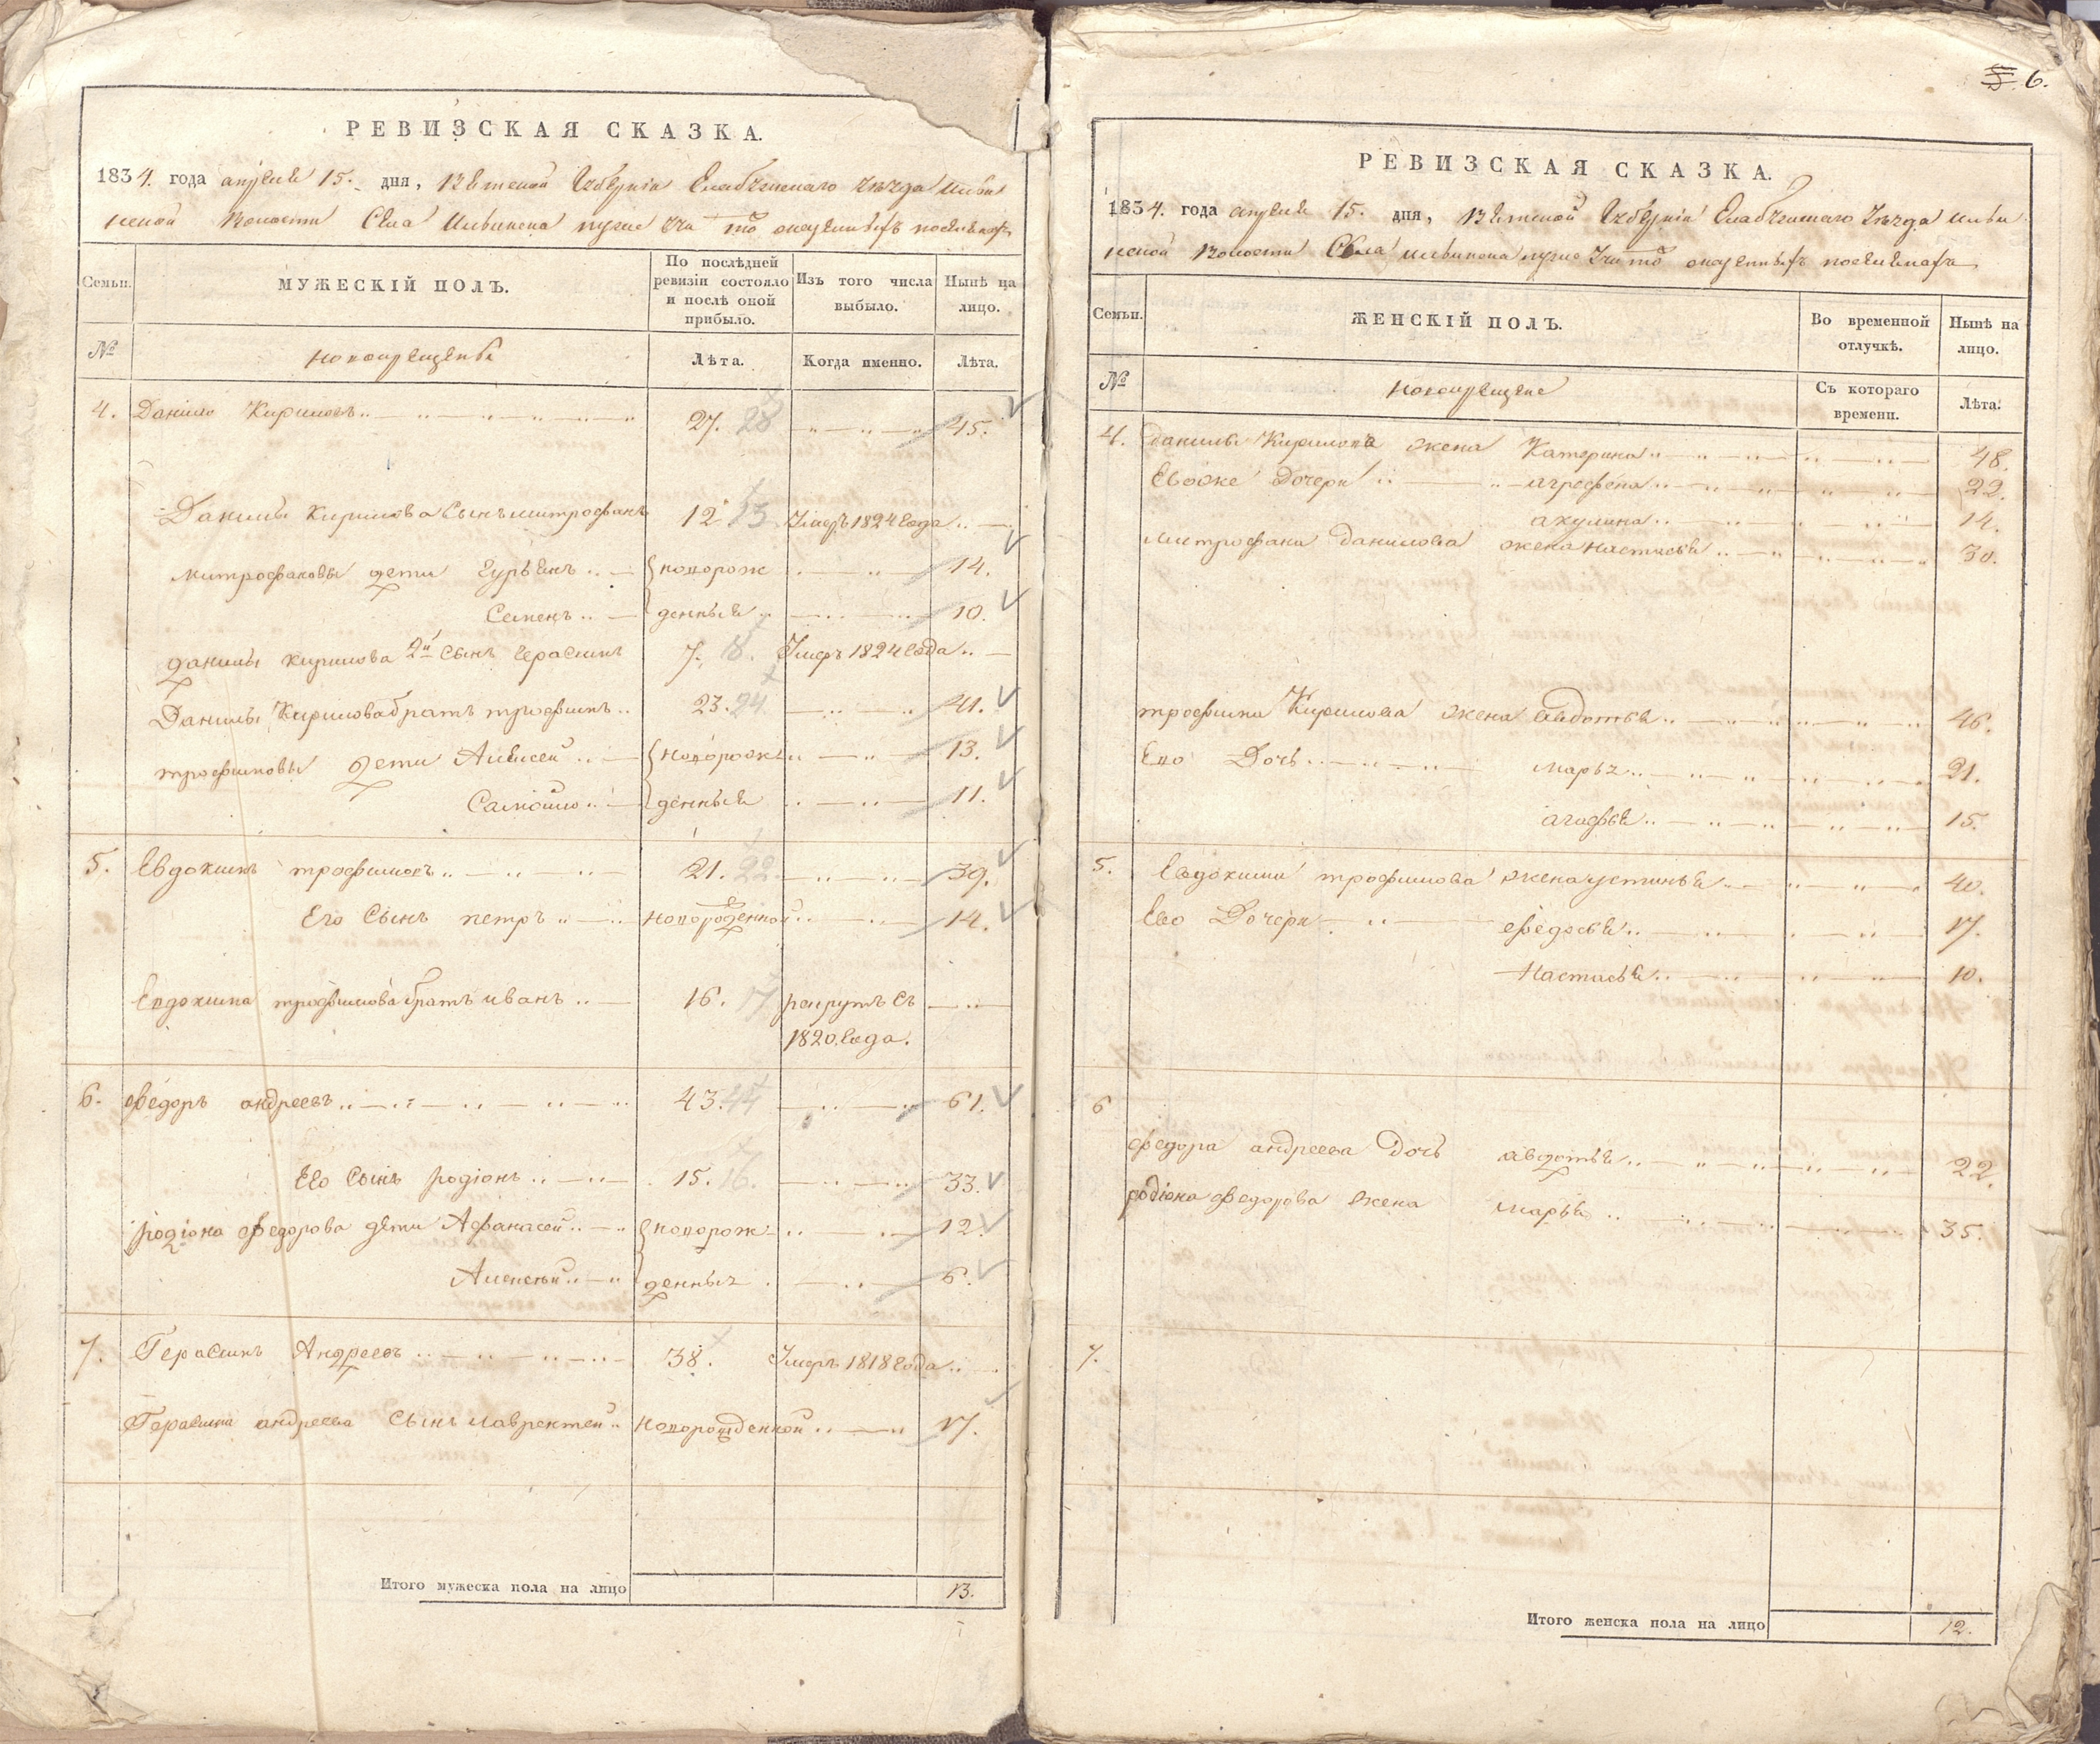 РЕВИЗСКАЯ СКАЗКА.
1834. года апреля 15. дня, Вятской Губернiи Елабужскаго Уезда Ильи
нской волости Села Ильинска
МУЖЕСКІЙ ПОЛЪ.
Семьи.
По послѣдней ревизіи состояло и послѣ оной прибыло.
Изъ того числа выбыло.
Нынѣ на лицо.
№
новокрещены
Лѣта.
Когда именно.
Лѣта.
4. Данило Кириловъ 27. 28 45.
Данилы Кирилова Сынъ митрофанъ 12 13. Умеръ 1824 года
митрофановы дети Гурьянъ новорож 14.
Семенъ денныя 10.
данилы кирилова 2й Сынъ Герасимъ 7. 8. Умеръ 1824 года
Данилы Кирилова братъ трофимъ 23. 24 41.
трофимовы дети Алексей новорож 13.
Самойло денныя 11.
5. Евдокимъ трофимовъ 21. 22. 39.
Его Сынъ петръ новорожденной 14.
Евдокима трофимова братъ иванъ 16. 17 рекрутъ съ
1820. года.
6. Федоръ андреевъ 43. 44 61.
Ево Сынъ родiонъ 15. 16. 33.
родiона федорова дети Афанасей новорож 12.
Алексей денныя 6.
7. Герасимъ Андреевъ 38. Умеръ 1818 года
Герасима андреева Сынъ лаврентей новорожденной 17.
Итого мужеска пола на лицо 13.
5 6.
РЕВИЗСКАЯ СКАЗКА.
1834. года апреля 15. дня, Вятской Губернiи Елабужскаго Уезда Ильи
нской волости Села ильинска
Семьи.
ЖЕНСКІЙ ПОЛЪ.
Во временной отлучкѣ.
Нынѣ на лицо.
№
новокрещены
Съ котораго времени.
Лѣта.
4. данилы Кирилова жена Катерина 48.
Евоже Дочери агрефена 22.
акулина 14.
митрофана данилова жена настасья 30.
трофима Кирилова жена авдотья 46.
Ево Дочь марья 21.
агафья 15.
5. Евдокима трофимова жена устинья 40.
Ево Дочери федосья 17.
Настасья 10.
6
федора андреева Дочь авдотья 22.
родiона федорова жена марья 35.
7.
Итого женска пола на лицо 12.